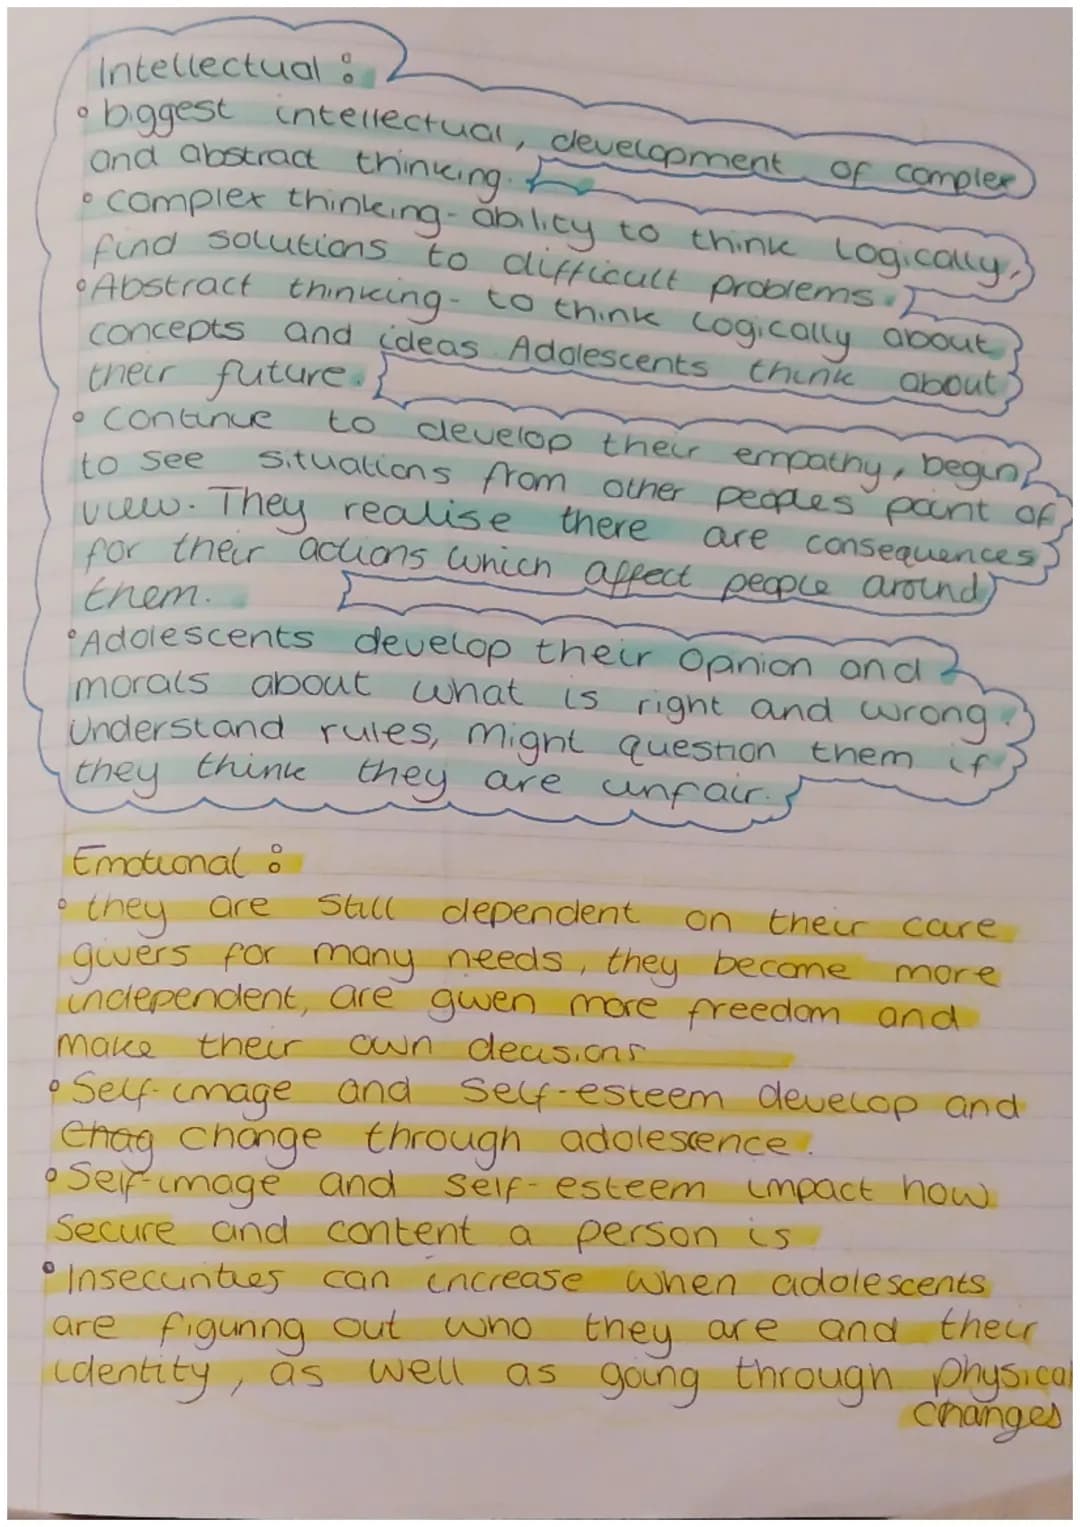 Intellectual :
• biggest intellectual, development of complex
and abstract thinking.
• complex thinking - ability to think logically,
find solutions to difficult problems.
• Abstract thinking - to think logically about
concepts and ideas. Adolescents think about
their future.
• Continue to develop their empathy, begin
to see situations from other peoples point of
view. They realise there are consequences
for their actions which affect people around
them.
• Adolescents develop their opinion and
morals about what is right and wrong.
Understand rules, might question them if
they think they are unfair.
Emotional :
• they are still dependent on their care
givers for many needs, they become more
independent, are given more freedom and
make their own decisions
• Self-image and self-esteem develop and
Chag change through adolescence.
• Self-image and self-esteem impact how
secure and content a person is
• Insecurities can increase when adolescents
are figuring out who they are and their
identity, as well as going through physical
changes